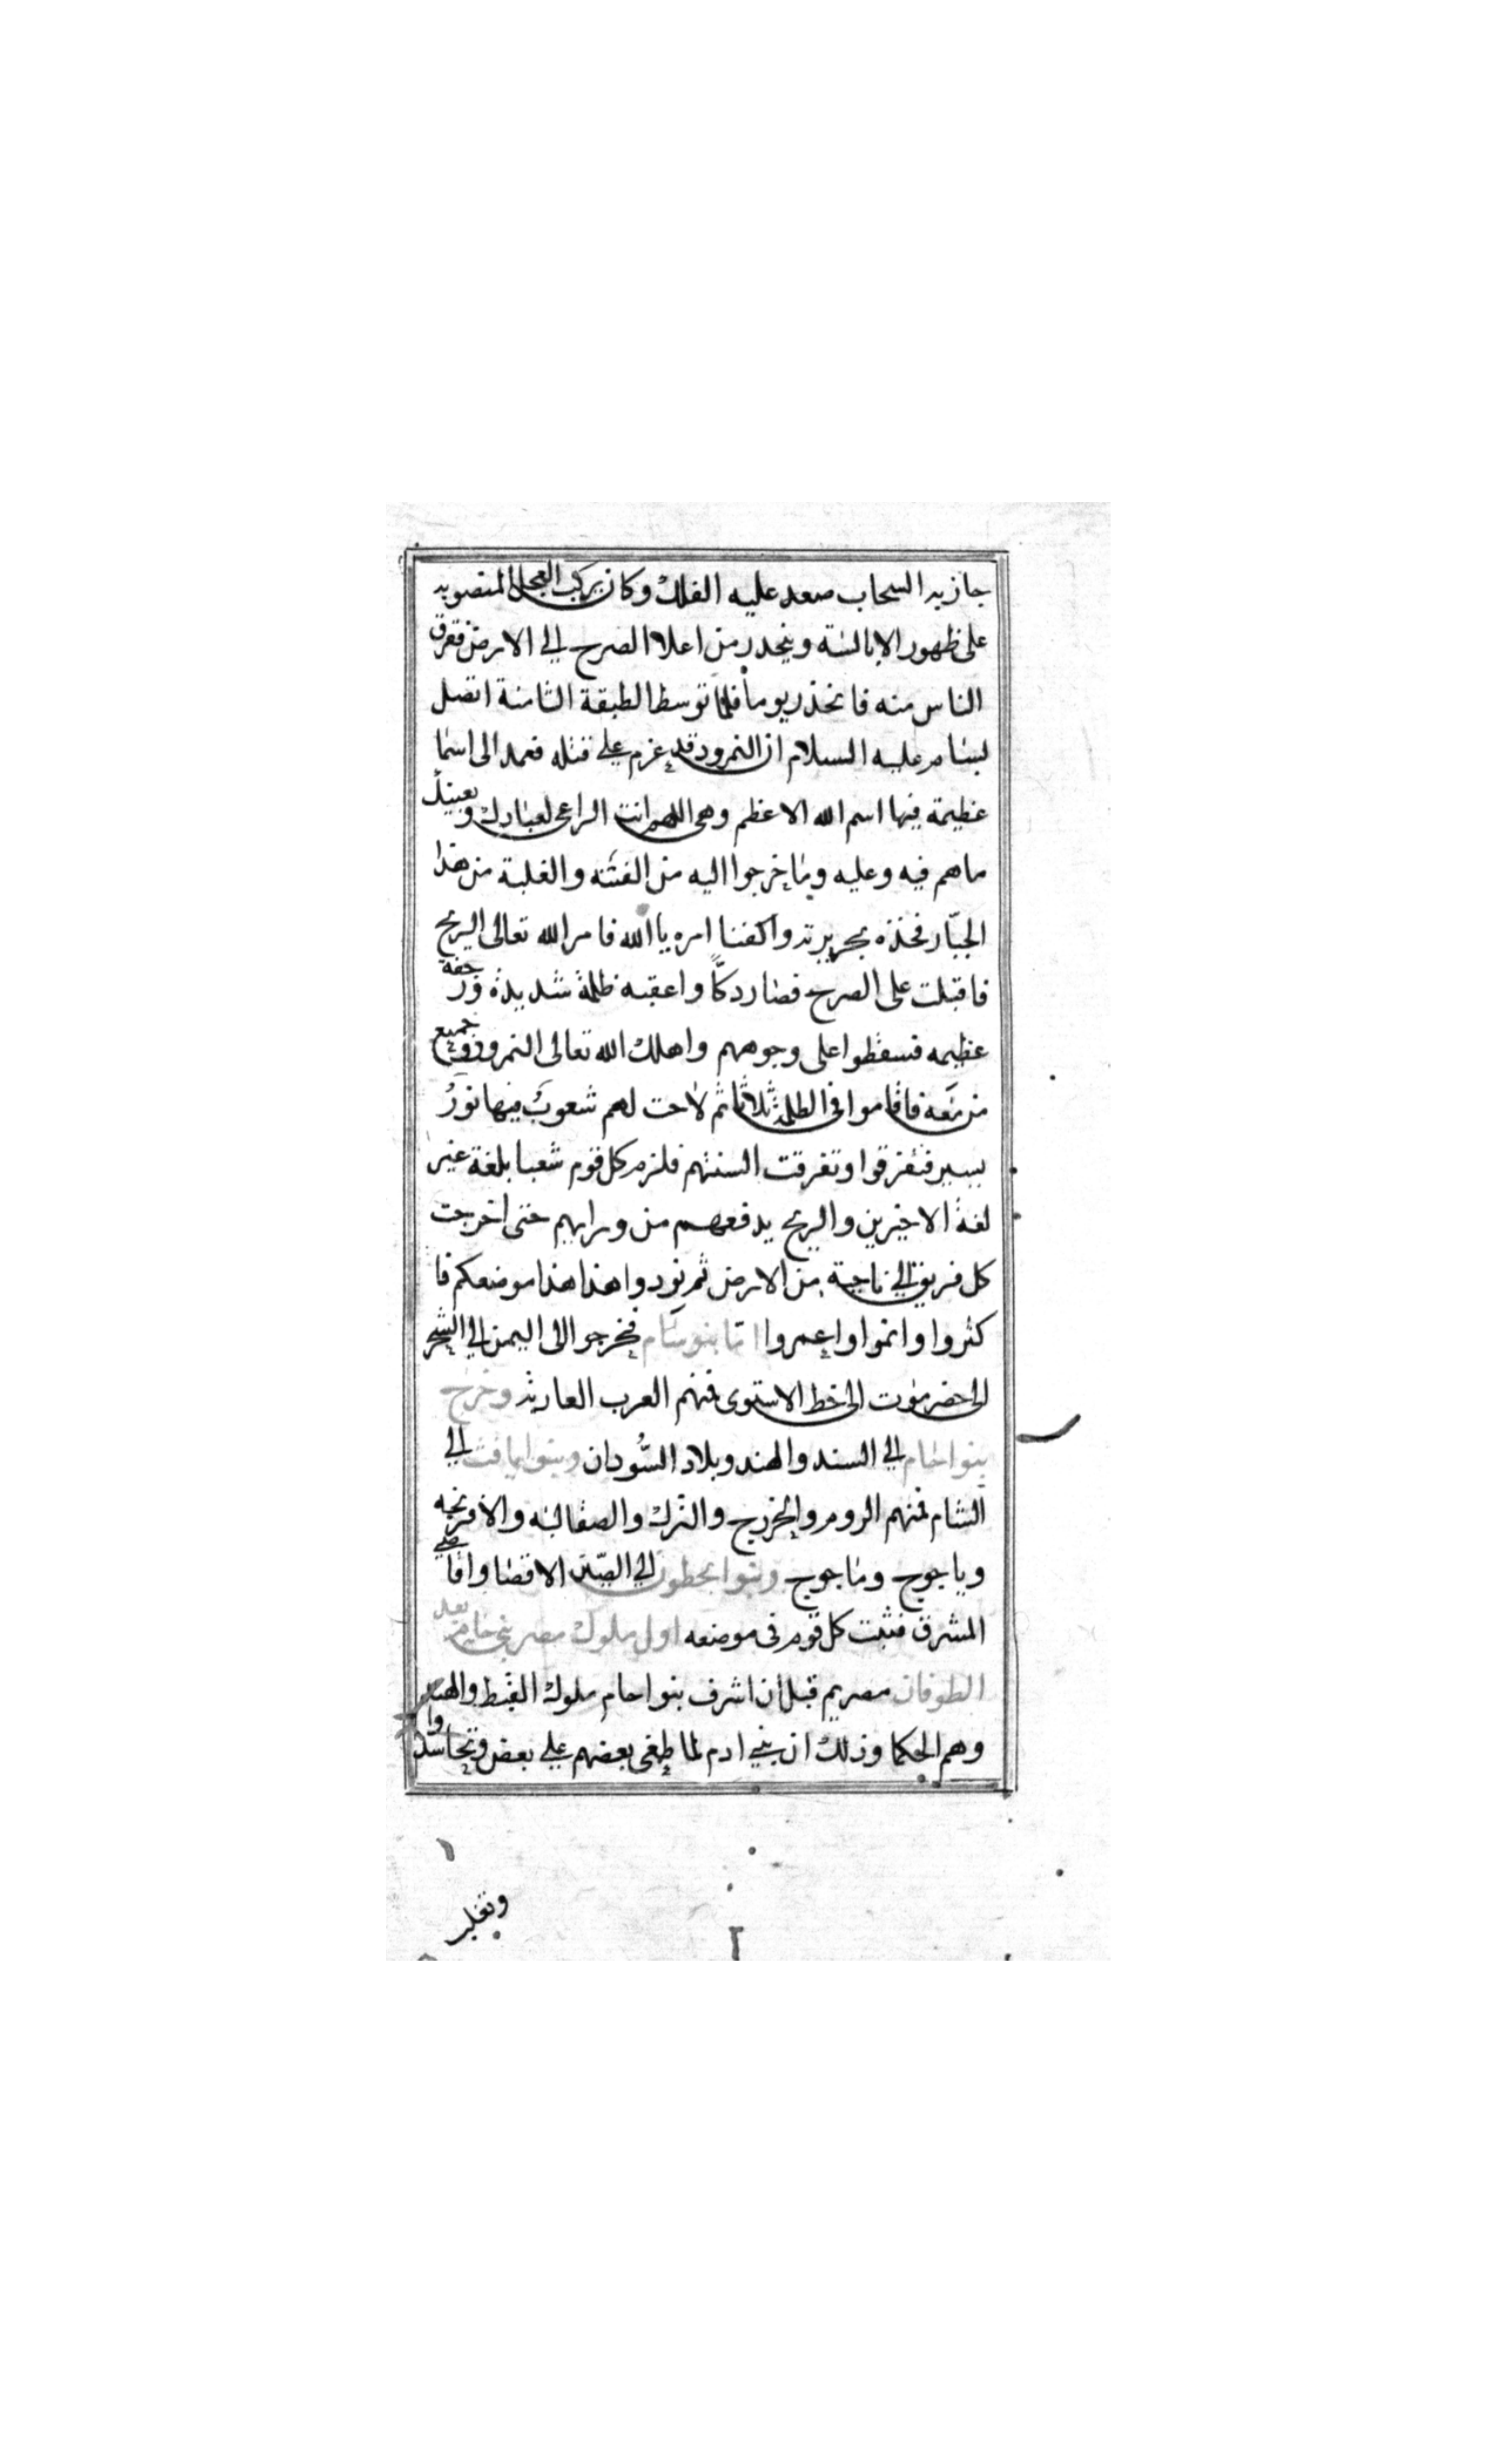 جاز به السحاب صعد عليه الفلك وكان يركب العجل المنصوبه
على ظهور الابالسة وينحدر من اعلا الصرح الي الارض ففرق
الناس منه فانحذر يوما فلما توسط الطبقة الثامنة اتصل
لسام عليه السلام ان النمرود قد عزم علي قتله فعمد الى اسما
عظيمة فيها اسم الله الاعظم وهى اللهم انت الراعى لعبادك وبعينك
ماهم فيه وعليه وما خرجوا اليه من الفتنه والغلبة من هذا
الجبّار فخذه بجريرته واكفنا امره يا الله فامر الله تعالى الريح
فاقبلت على الصرح فصار دكًّا واعقبه ظلمة شديدة ورجفة
عظيمه فسقطوا على وجوههم واهلك الله تعالى النمرود وجميع
من معه فاقاموا فى الظلمة ثلاثا ثم لاحت لهم شعوب فيها نور
يسير فتفرقوا وتفرقت السنتهم فلزم كل قوم شعبا بلغة غير
لغة الاخيرين والريح يدفعهم من ورايهم حتى اخرجت
كل فريق الي ناحية من الارض ثم نودوا هذا هذا موضعكم فا
كثروا وانموا واعمروا اما بنو سام فخرجوا الى اليمن الي الشحر
الى حضرموت الى خط الاستوى فمنهم العرب العاربه وخرج
بنوا حام الي السند والهند وبلاد السُّودان وبنوا يافت الي
الشام فمنهم الروم والخزرج والترك والصقالبه والافرنجه
وياجوج وماجوج وبنوا يحطون الي الصّين الاقصا واقاصي
المشرق فثبت كل قوم فى موضعه اول ملوك مصر بني حام بعد
الطوفان مصريم قبل ان اشرف بنوا حام ملوك القبط والهند
وهم الحكما وذلك ان بني ادم لما طغى بعضهم علي بعض وتحاسدوا